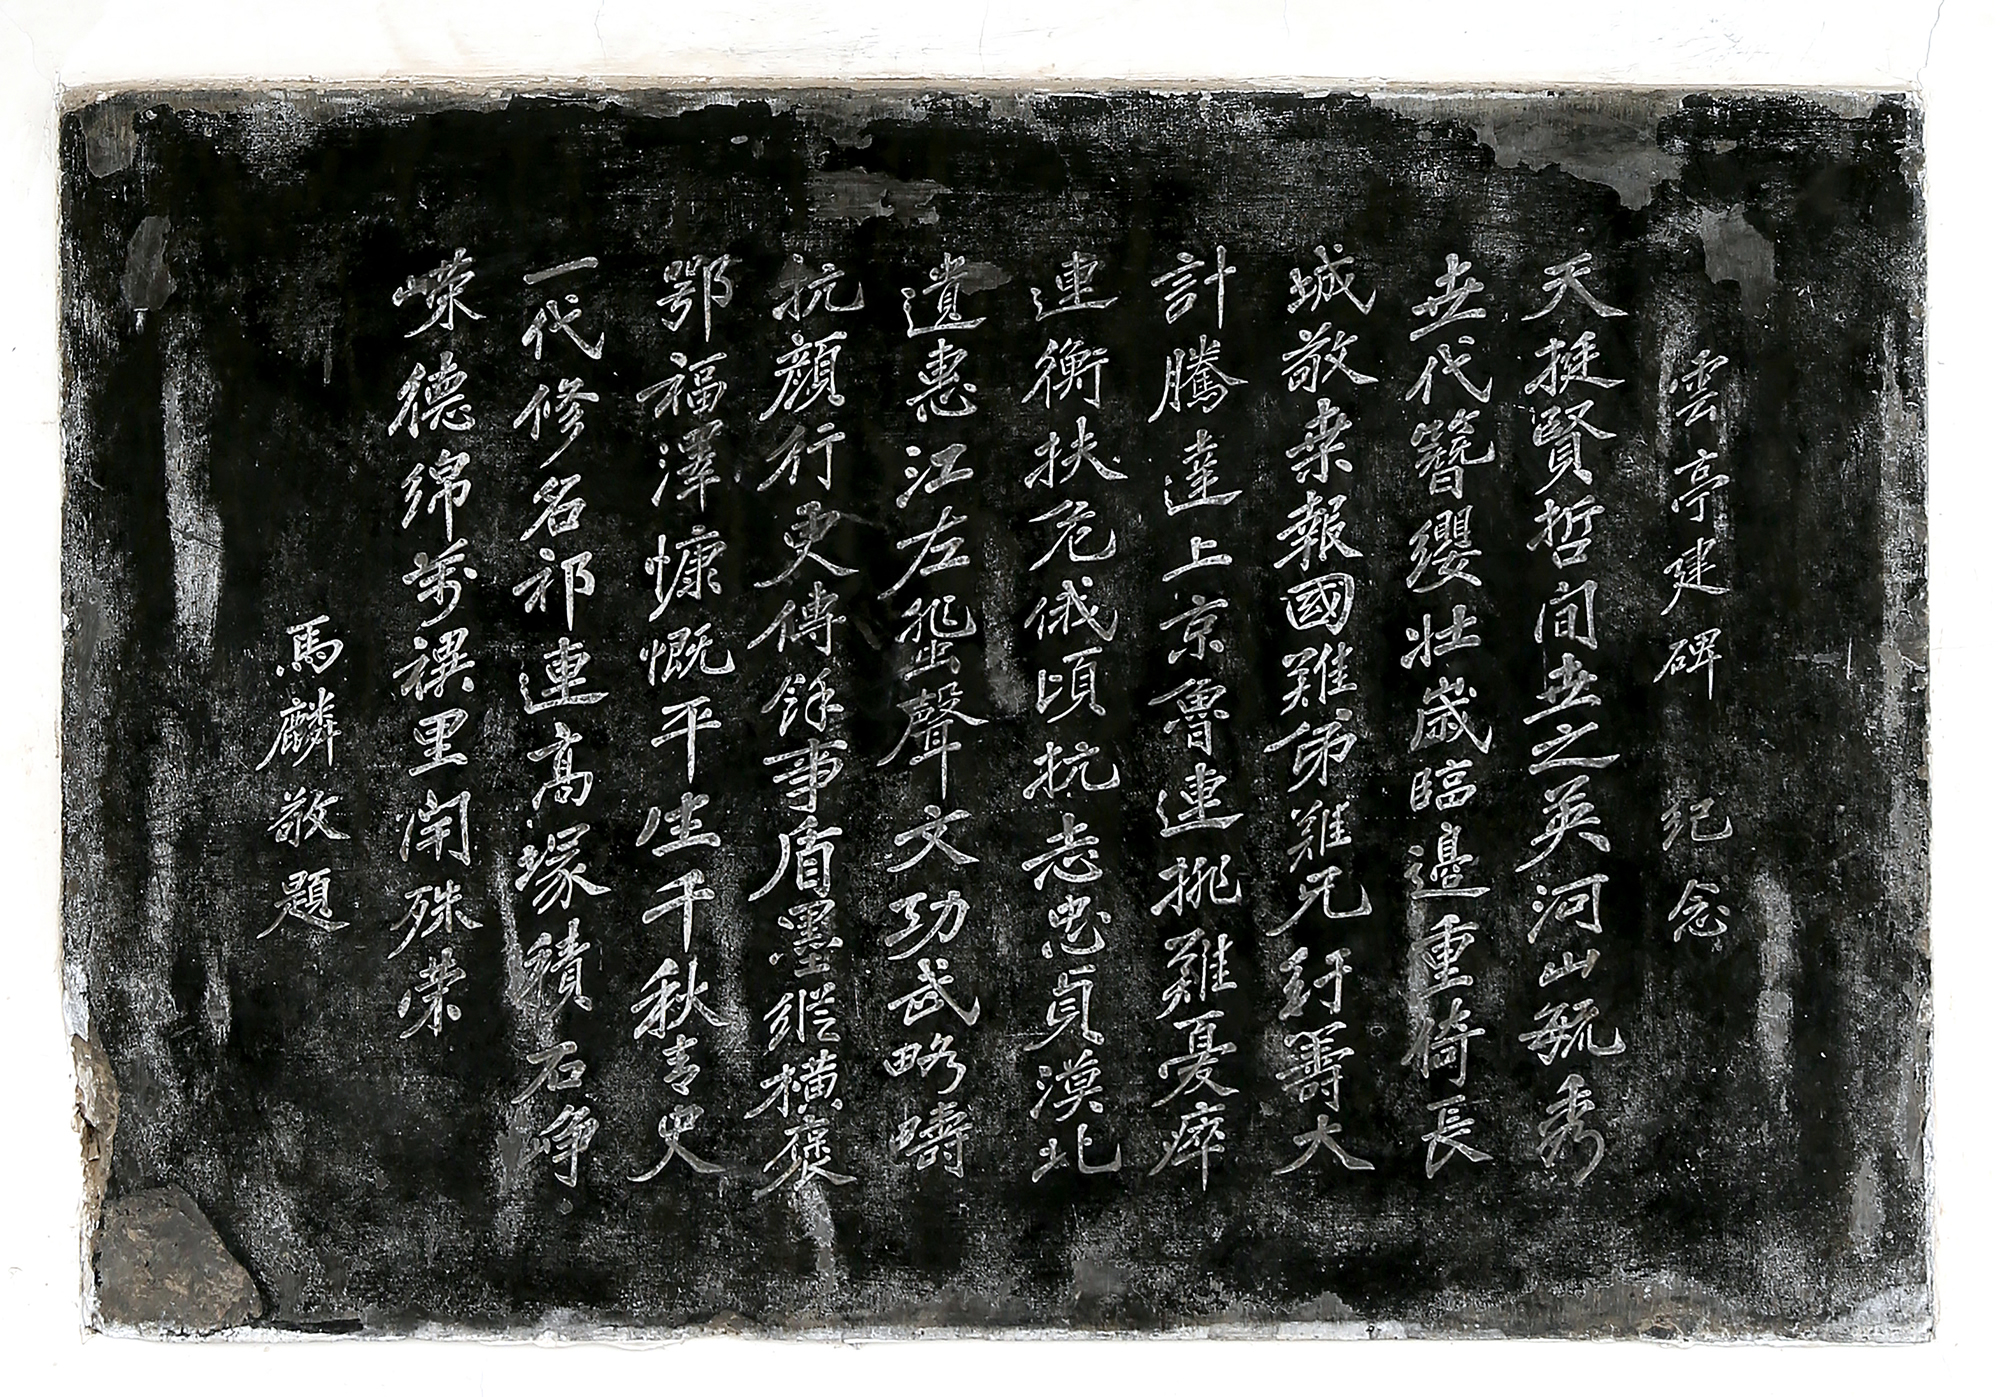 雲亭建碑 紀念
天挺賢哲間世之英河山毓秀
世代簪纓壯歲臨邊重倚長
城敬桑報國難弟難兄紆籌大
計騰達上京魯連排難憂瘁
連衡扶危俄頃抗志忠貞漠北
遺惠江左蜚聲文功武略疇
抗顏行更傳餘事盾墨縱横褒
鄂福澤慷慨平生千秋青史
一代修名祁連高塚積石崢
嶸德綿萬禩里閈殊荣
馬麟敬題